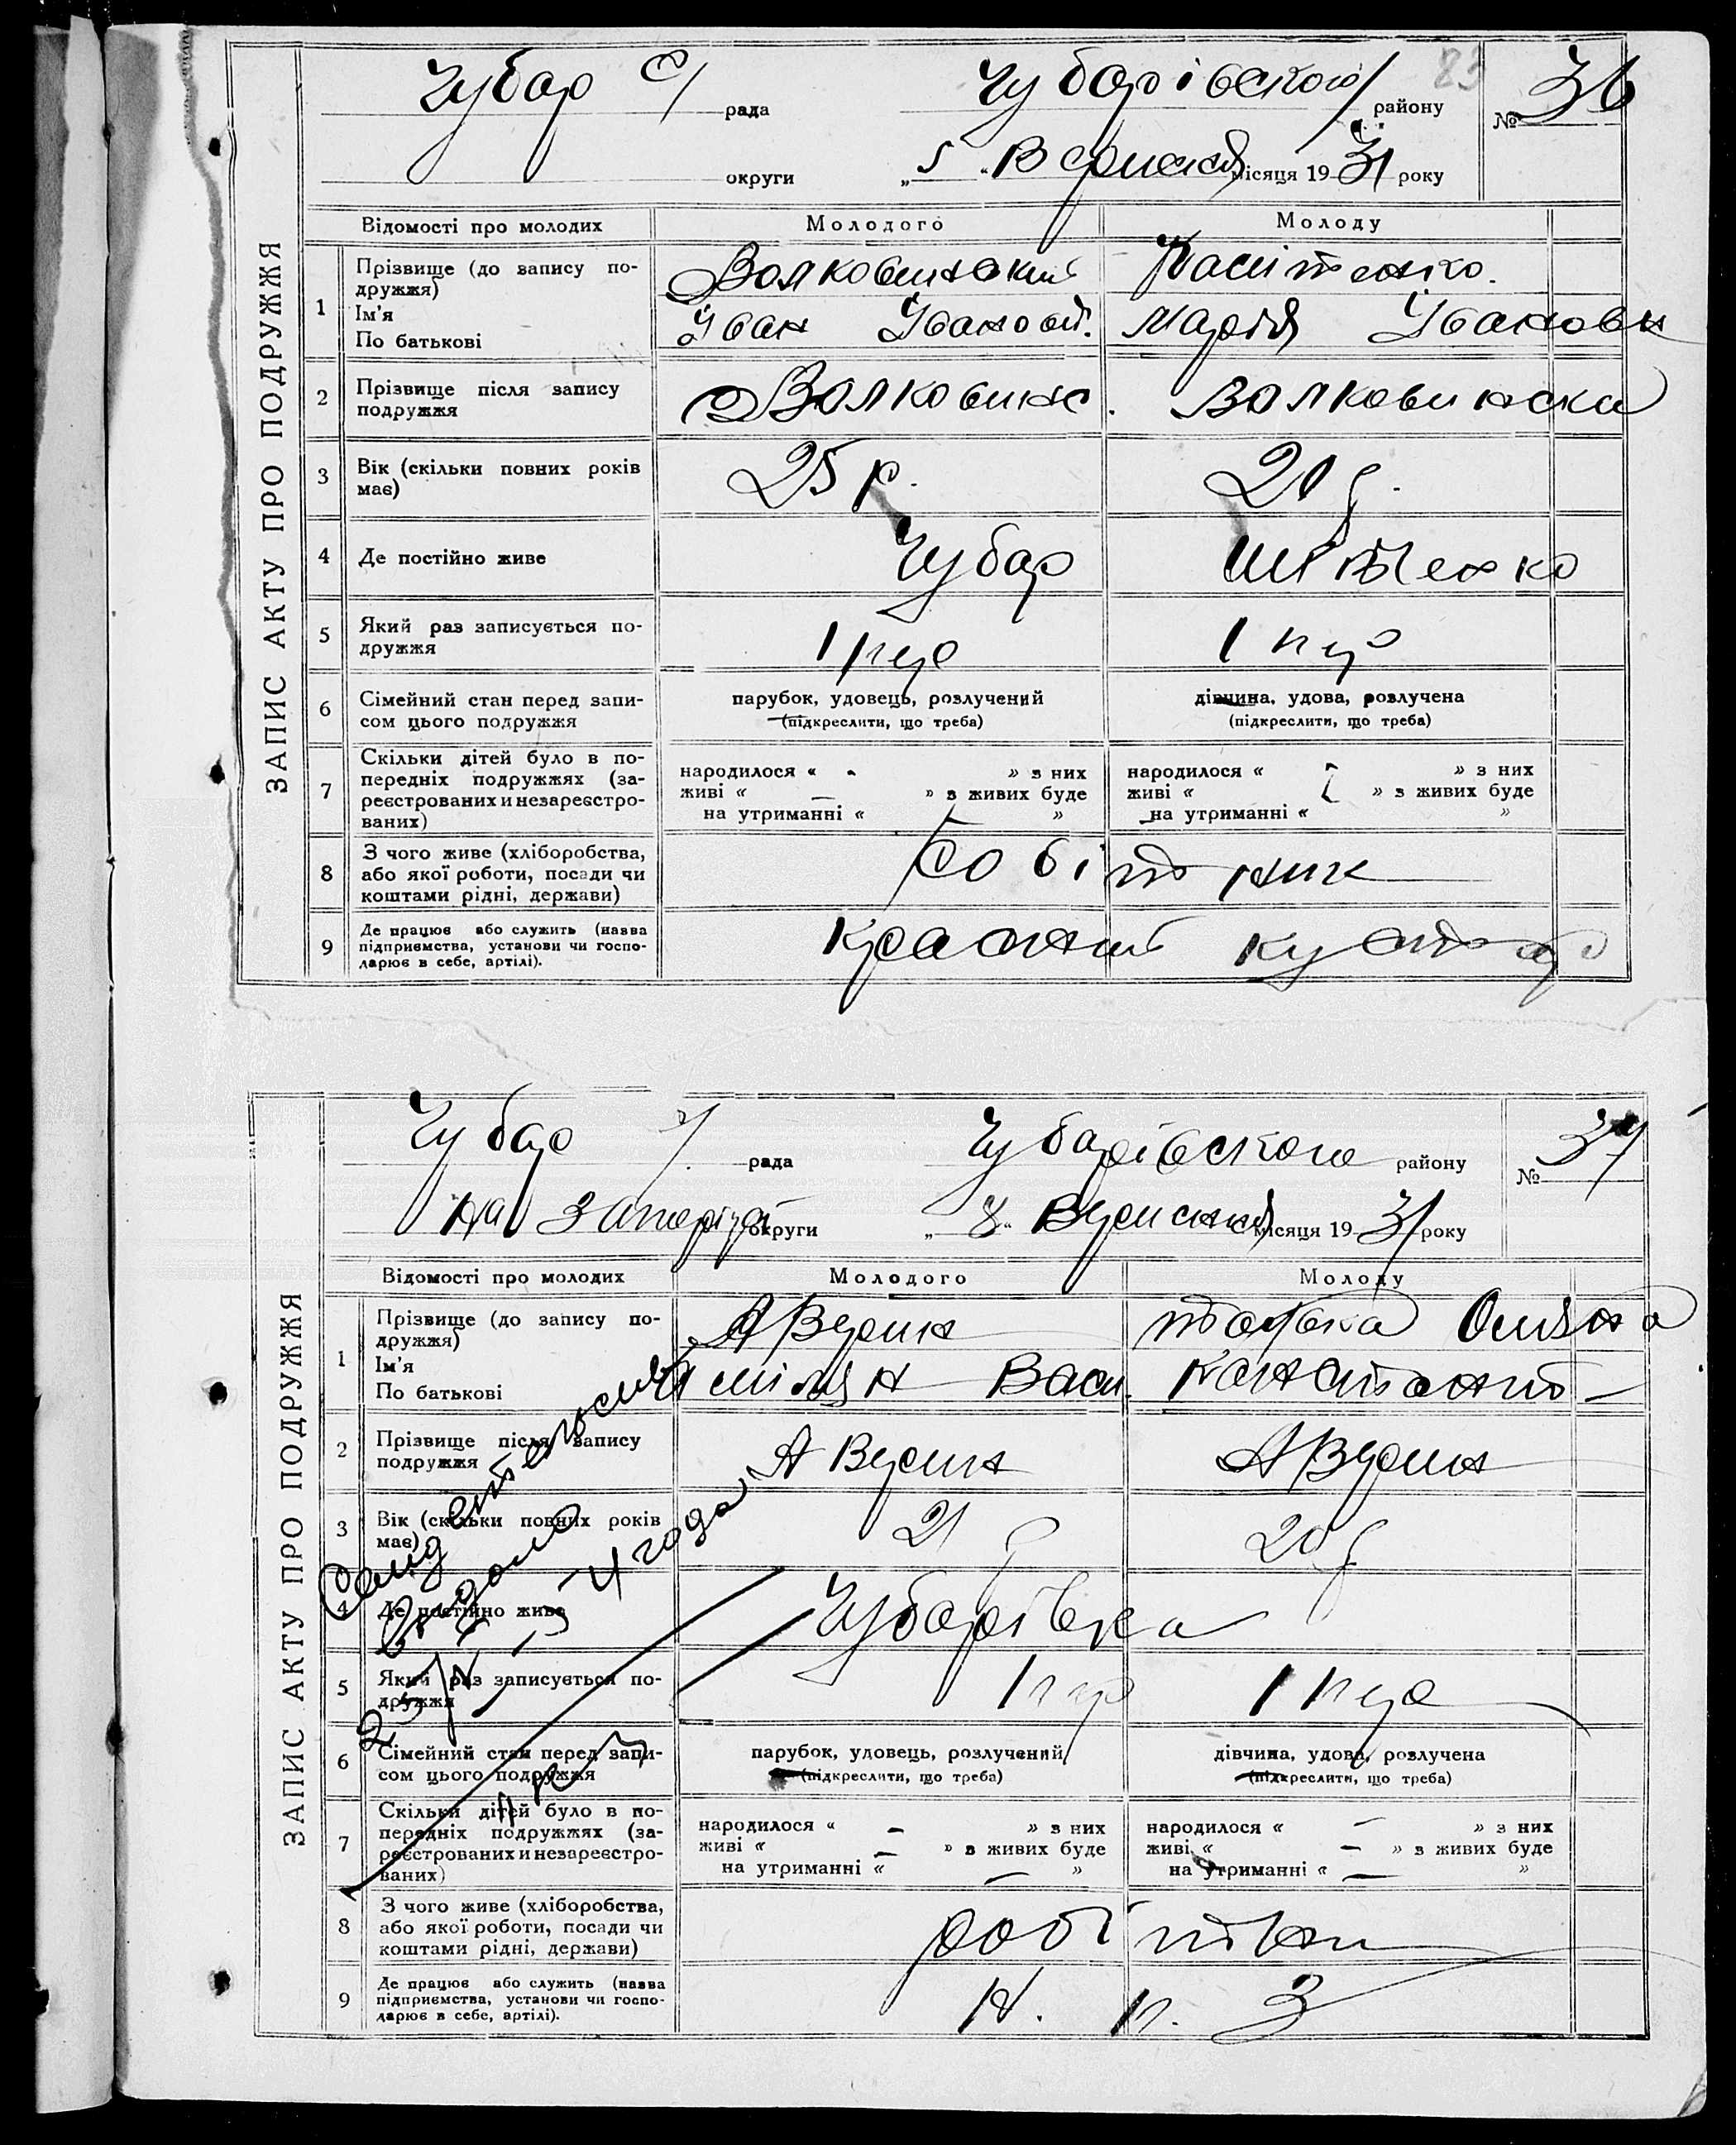 23
Чубар с/ рада Чубарівского району № 36
округи „ 5 “ Вересня місяця 1931 року
ЗАПИС АКТУ ПРО ПОДРУЖЖЯ
Відомості про молодих Молодого Молоду
1 Прізвище (до запису по-
дружжя)
Ім'я
По батькові
Волковинский
Іван Іванов.
Марія Іванов
2 Прізвище після запису
подружжя
Волковинс. Волковинска
3 Вік (скільки повних років
має)
25 р. 20 р.
4 Де постійно живе Чубар
5 Який раз записується по-
дружжя
1 пер 1 пер
6 Сімейний стан перед запи-
сом цього подружжя
парубок, удовець, розлучений
(підкреслити, що треба)
дівчина, удова, розлучена
(підкреслити, що треба)
7 Скільки дітей було в по-
передніх подружжях (за-
реєстрованих и незареєстро-
ваних)
народилося « - » з них
живі « — » з живих буде
на утриманні « »
народилося « » з них
живі « » з живих буде
на утриманні « »
8 З чого живе (хліборобства,
або якої роботи, посади чи
коштами рідні, держави)
робітник
9 Де працює або служить (назва
підприємства, установи чи госпо-
дарює в себе, артілі).
Красний кустар
Чубар /. рада Чубарівского району № 37
на Запоріза округи „ 8 “ Вересня місяця 1931 року
ЗАПИС АКТУ ПРО ПОДРУЖЖЯ
Відомості про молодих Молодого Молоду
1 Прізвище (до запису по-
дружжя)
Ім'я
По батькові
Аверин
Васи. Констант
2 Прізвище після запису
подружжя
Аверин Аверин
3 Вік (скільки повних років
має)
21 р 20 р
4 Де постійно живе Чубарівка
5 Який раз записується по-
дружжя
1 пер 1 пер
6 Сімейний стан перед запи-
сом цього подружжя
парубок, удовець, розлучений
(підкреслити, що треба)
дівчина, удова, розлучена
(підкреслити, що треба)
7 Скільки дітей було в по-
передніх подружжях (за-
реєстрованих и незареєстро-
ваних)
народилося « — » з них
живі « — » з живих буде
на утриманні « — »
народилося « — » з них
живі « — » з живих буде
на утриманні « — »
8 З чого живе (хліборобства,
або якої роботи, посади чи
коштами рідні, держави)
робітни
9 Де працює або служить (назва
підприємства, установи чи госпо-
дарює в себе, артілі).
Н. п. З
года